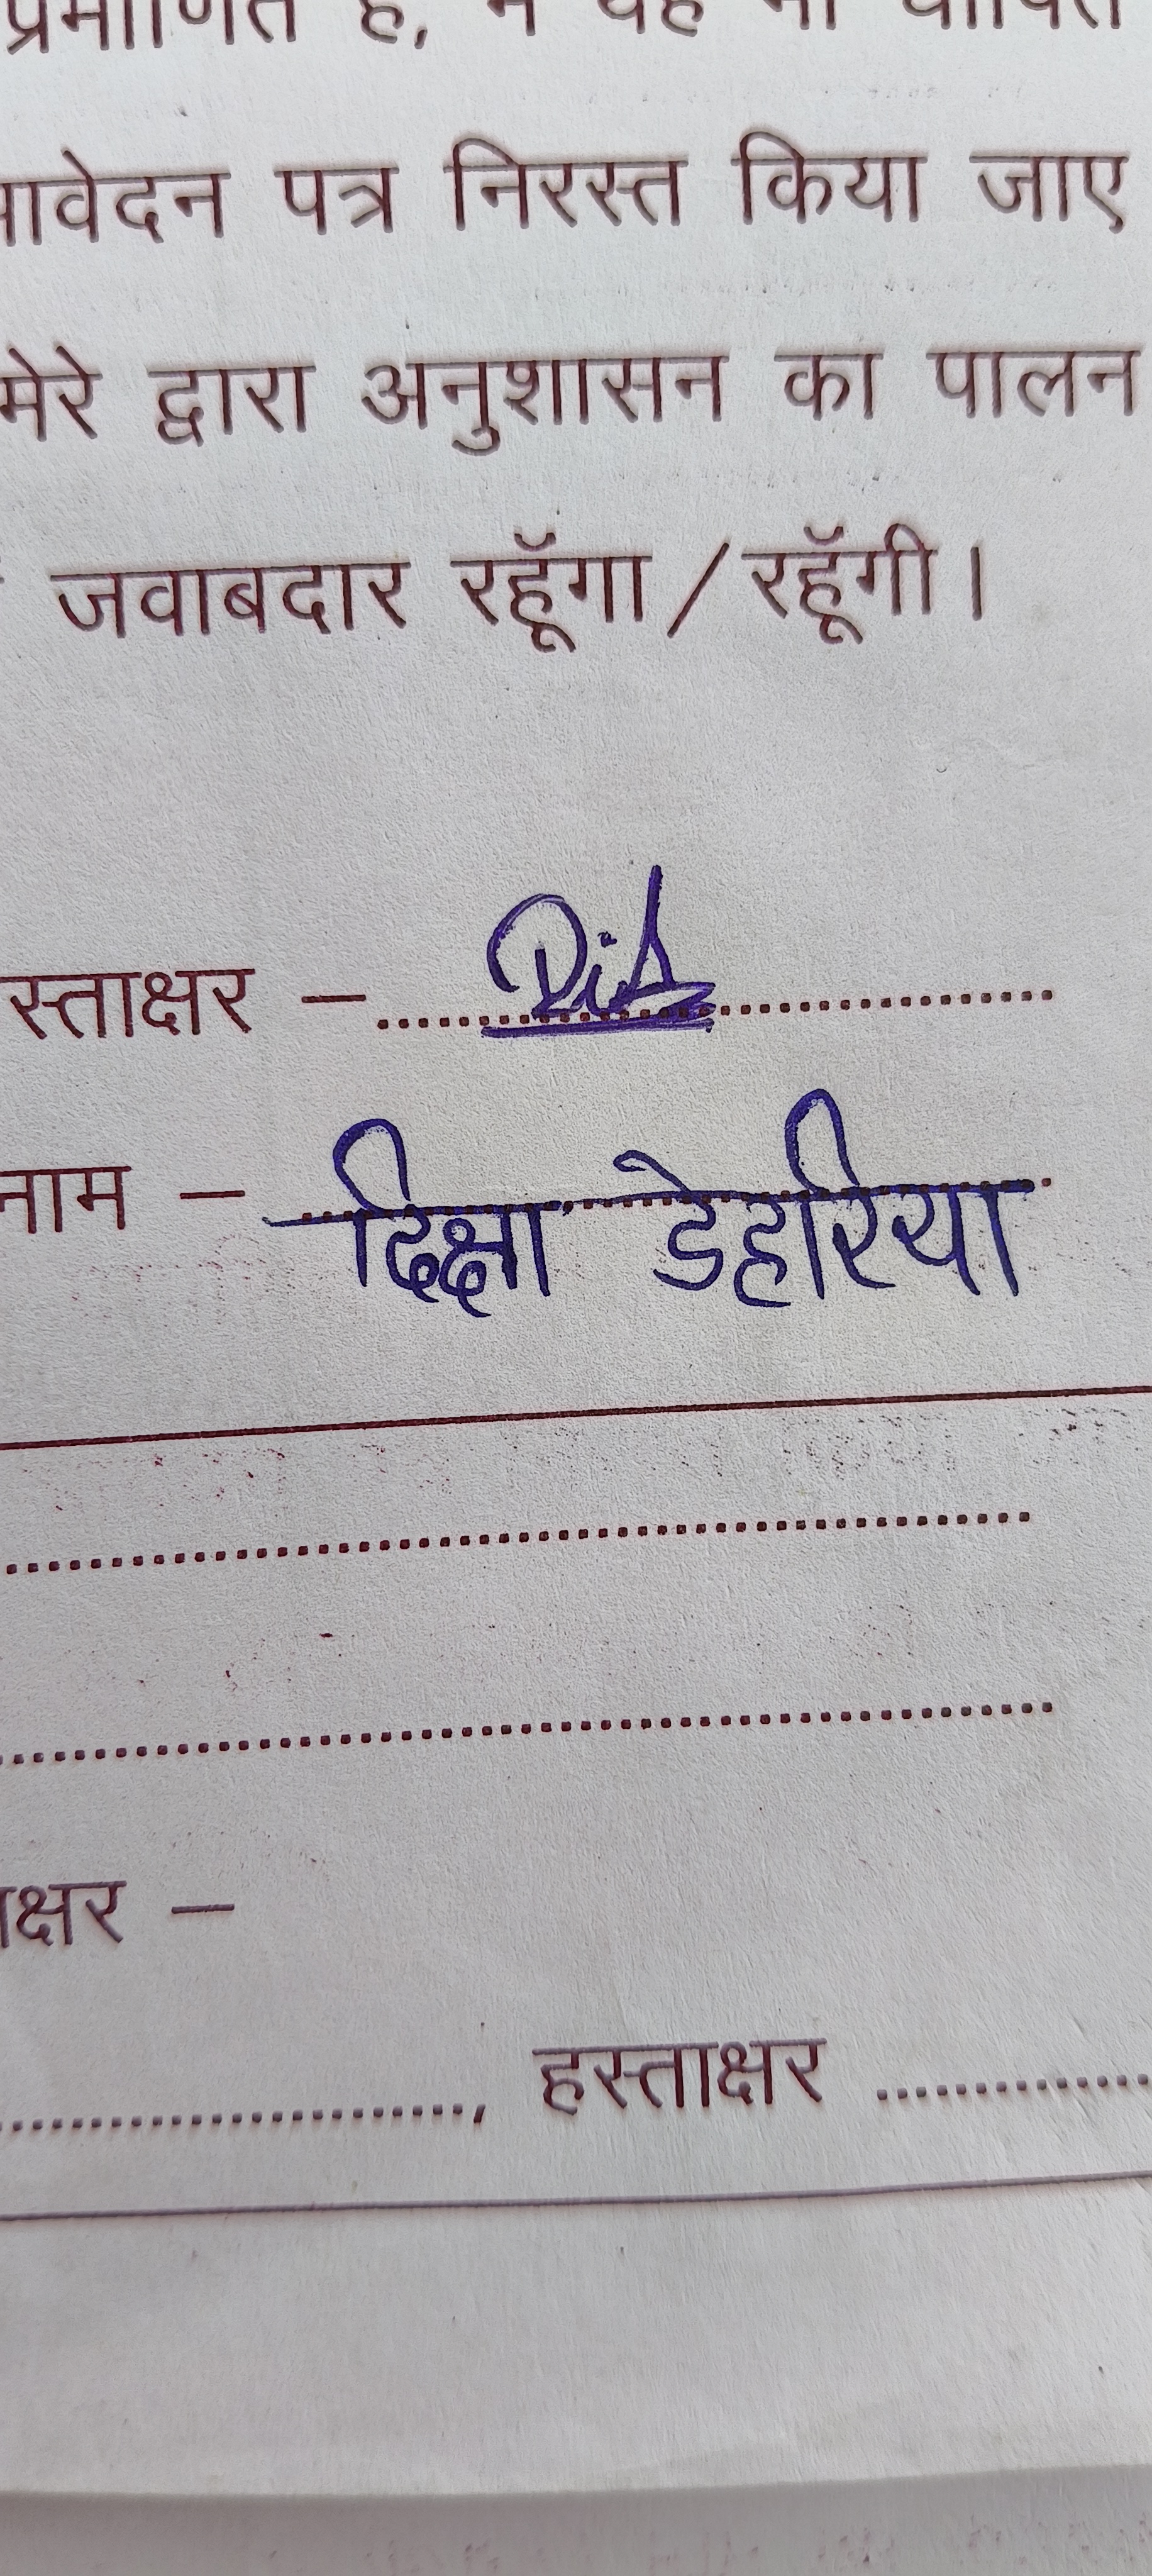 आवेदन पत्र निरस्त किया जाए
मेरे द्वारा अनुशासन का पालन
जवाबदार रहूँगा / रहूँगी।
स्ताक्षर –
नाम – दिक्षा डेहरिया
क्षर –
, हस्ताक्षर